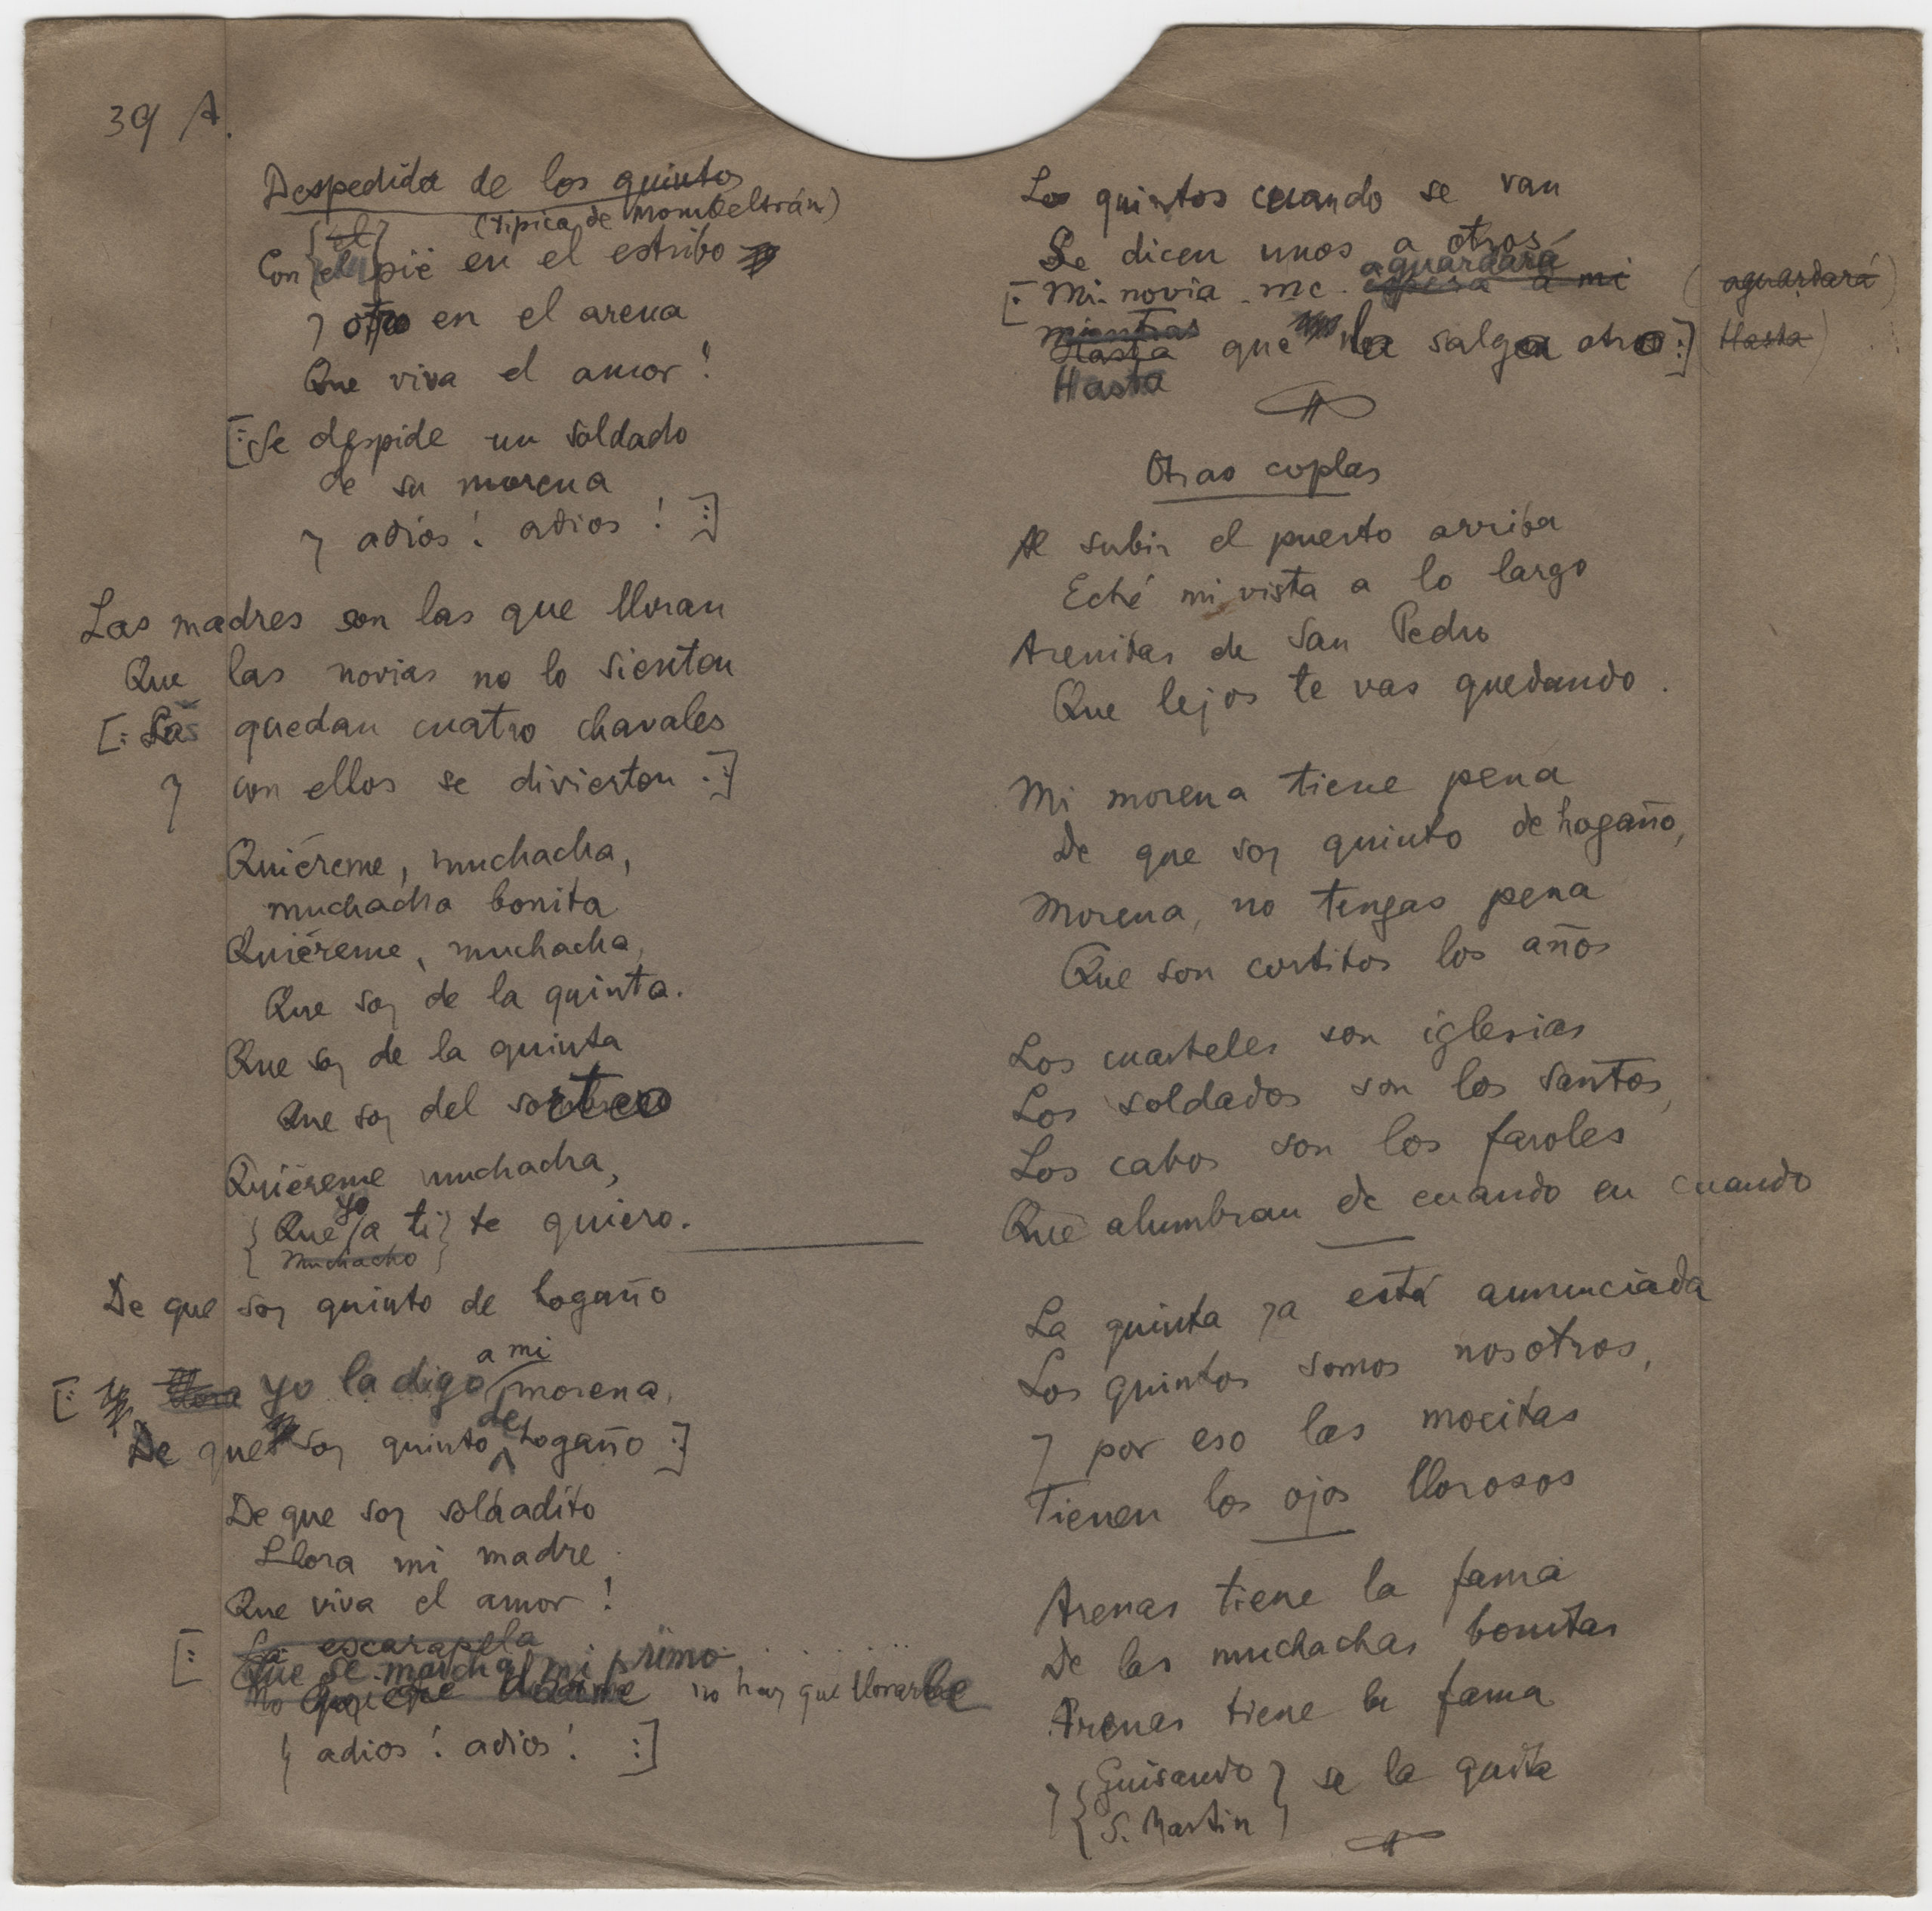 39 A.
Despedida de los quintos
(típica de Mombeltrán)
el
Con { el } pié en el estribo
y otro en el arena
Que viva el amor!
[: Se despide un soldado
de su morena
y adiós! adios! :]
Las madres son las que lloran
Que las novias no lo sienten
[: Las quedan cuatro chavales
y con ellos se divierten :]
Quiéreme, muchacha,
muchacha bonita
Quiéreme, muchacha,
Que soy de la quinta.
Que soy de la quinta
Que soy del sorteo
Quiéreme muchacha,
yo
{ Que a ti } te quiero.
{ Muchacho }
De que soy quinto de hogaño
a mi
[: llora yo la digo morena,
de
De que soy quinto hogaño :]
De que soy soldadito
Llora mi madre
Que viva el amor!
[: La escarapela
Que se marcha mi primo
no quiere no hay que llorarle
y adios! adios! :]
Los quintos cuando se van
Se dicen unos a otros
aguardará
[: Mi novia me espera a mi (aguardará)
mientras
Hasta que la salga otro :] (Hasta)
Hasta
Otras coplas
Al subir el puerto arriba
Eché mi vista a lo largo
Arenitas de San Pedro
Que lejos te vas quedando.
Mi morena tiene pena
De que soy quinto de hogaño,
Morena, no tengas pena
Que son cortitos los años
Los cuarteles son iglesias
Los soldados son los santos,
Los cabos son los faroles
Que alumbran de cuando en cuando
La quinta ya está anunciada
Los quintos somos nosotros,
y por eso las mocitas
Tienen los ojos llorosos
Arenas tiene la fama
De las muchachas bonitas
Arenas tiene la fama
y { Guisando } se la quita
{ S. Martin }